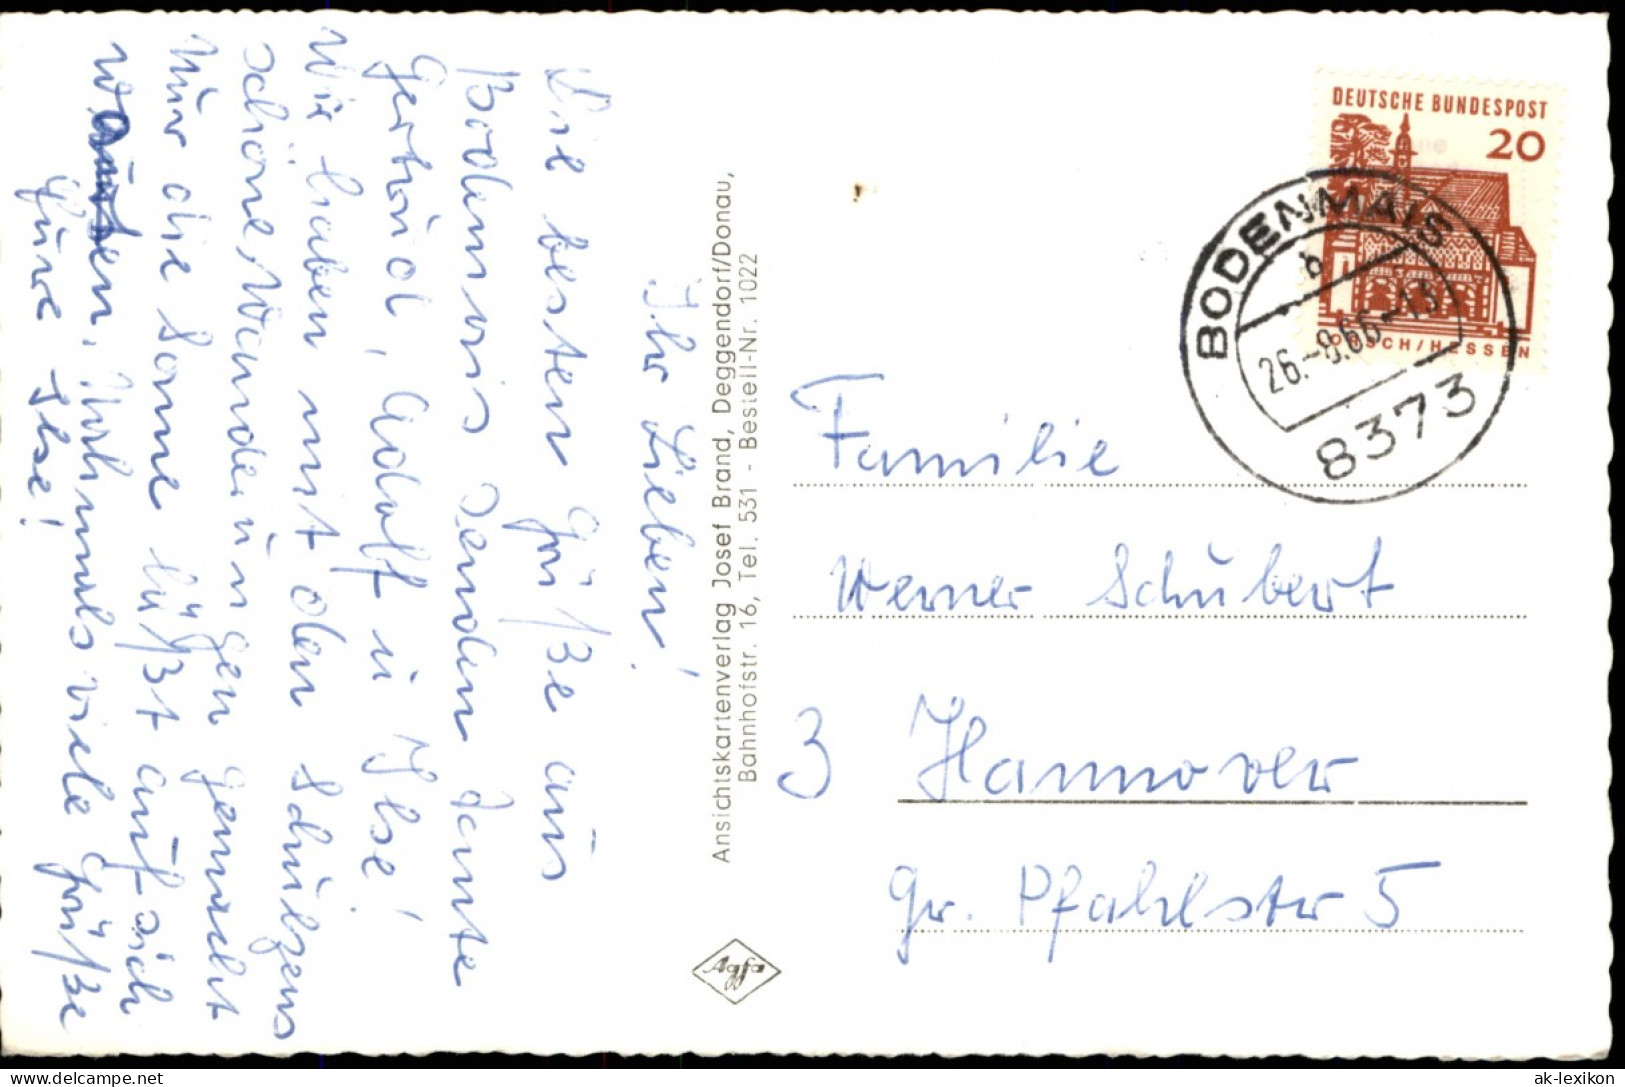 Ihr Lieben!
Die besten Grüße aus
Bodenmais senden Tante
Gertrud, Adolf u Ilse!
Wir haben mit den Schulzens
schöne Wanderungen gemacht
Nur die Sonne läßt auf sich
warten. Nochmals viele Grüße
Eure Ilse!
Ansichtskartenverlag Josef Brand, Deggendorf/Donau,
Bahnhofstr. 16, Tel. 531 - Bestell-Nr. 1022
Agfa
DEUTSCHE BUNDESPOST
20
LORSCH/HESSEN
BODENMAIS
b
26.-8.66-13
8373
Familie
Werner Schubert
3 Hannover
Gr. Pfahlstr 5
www.delcampe.net
ak-lexikon